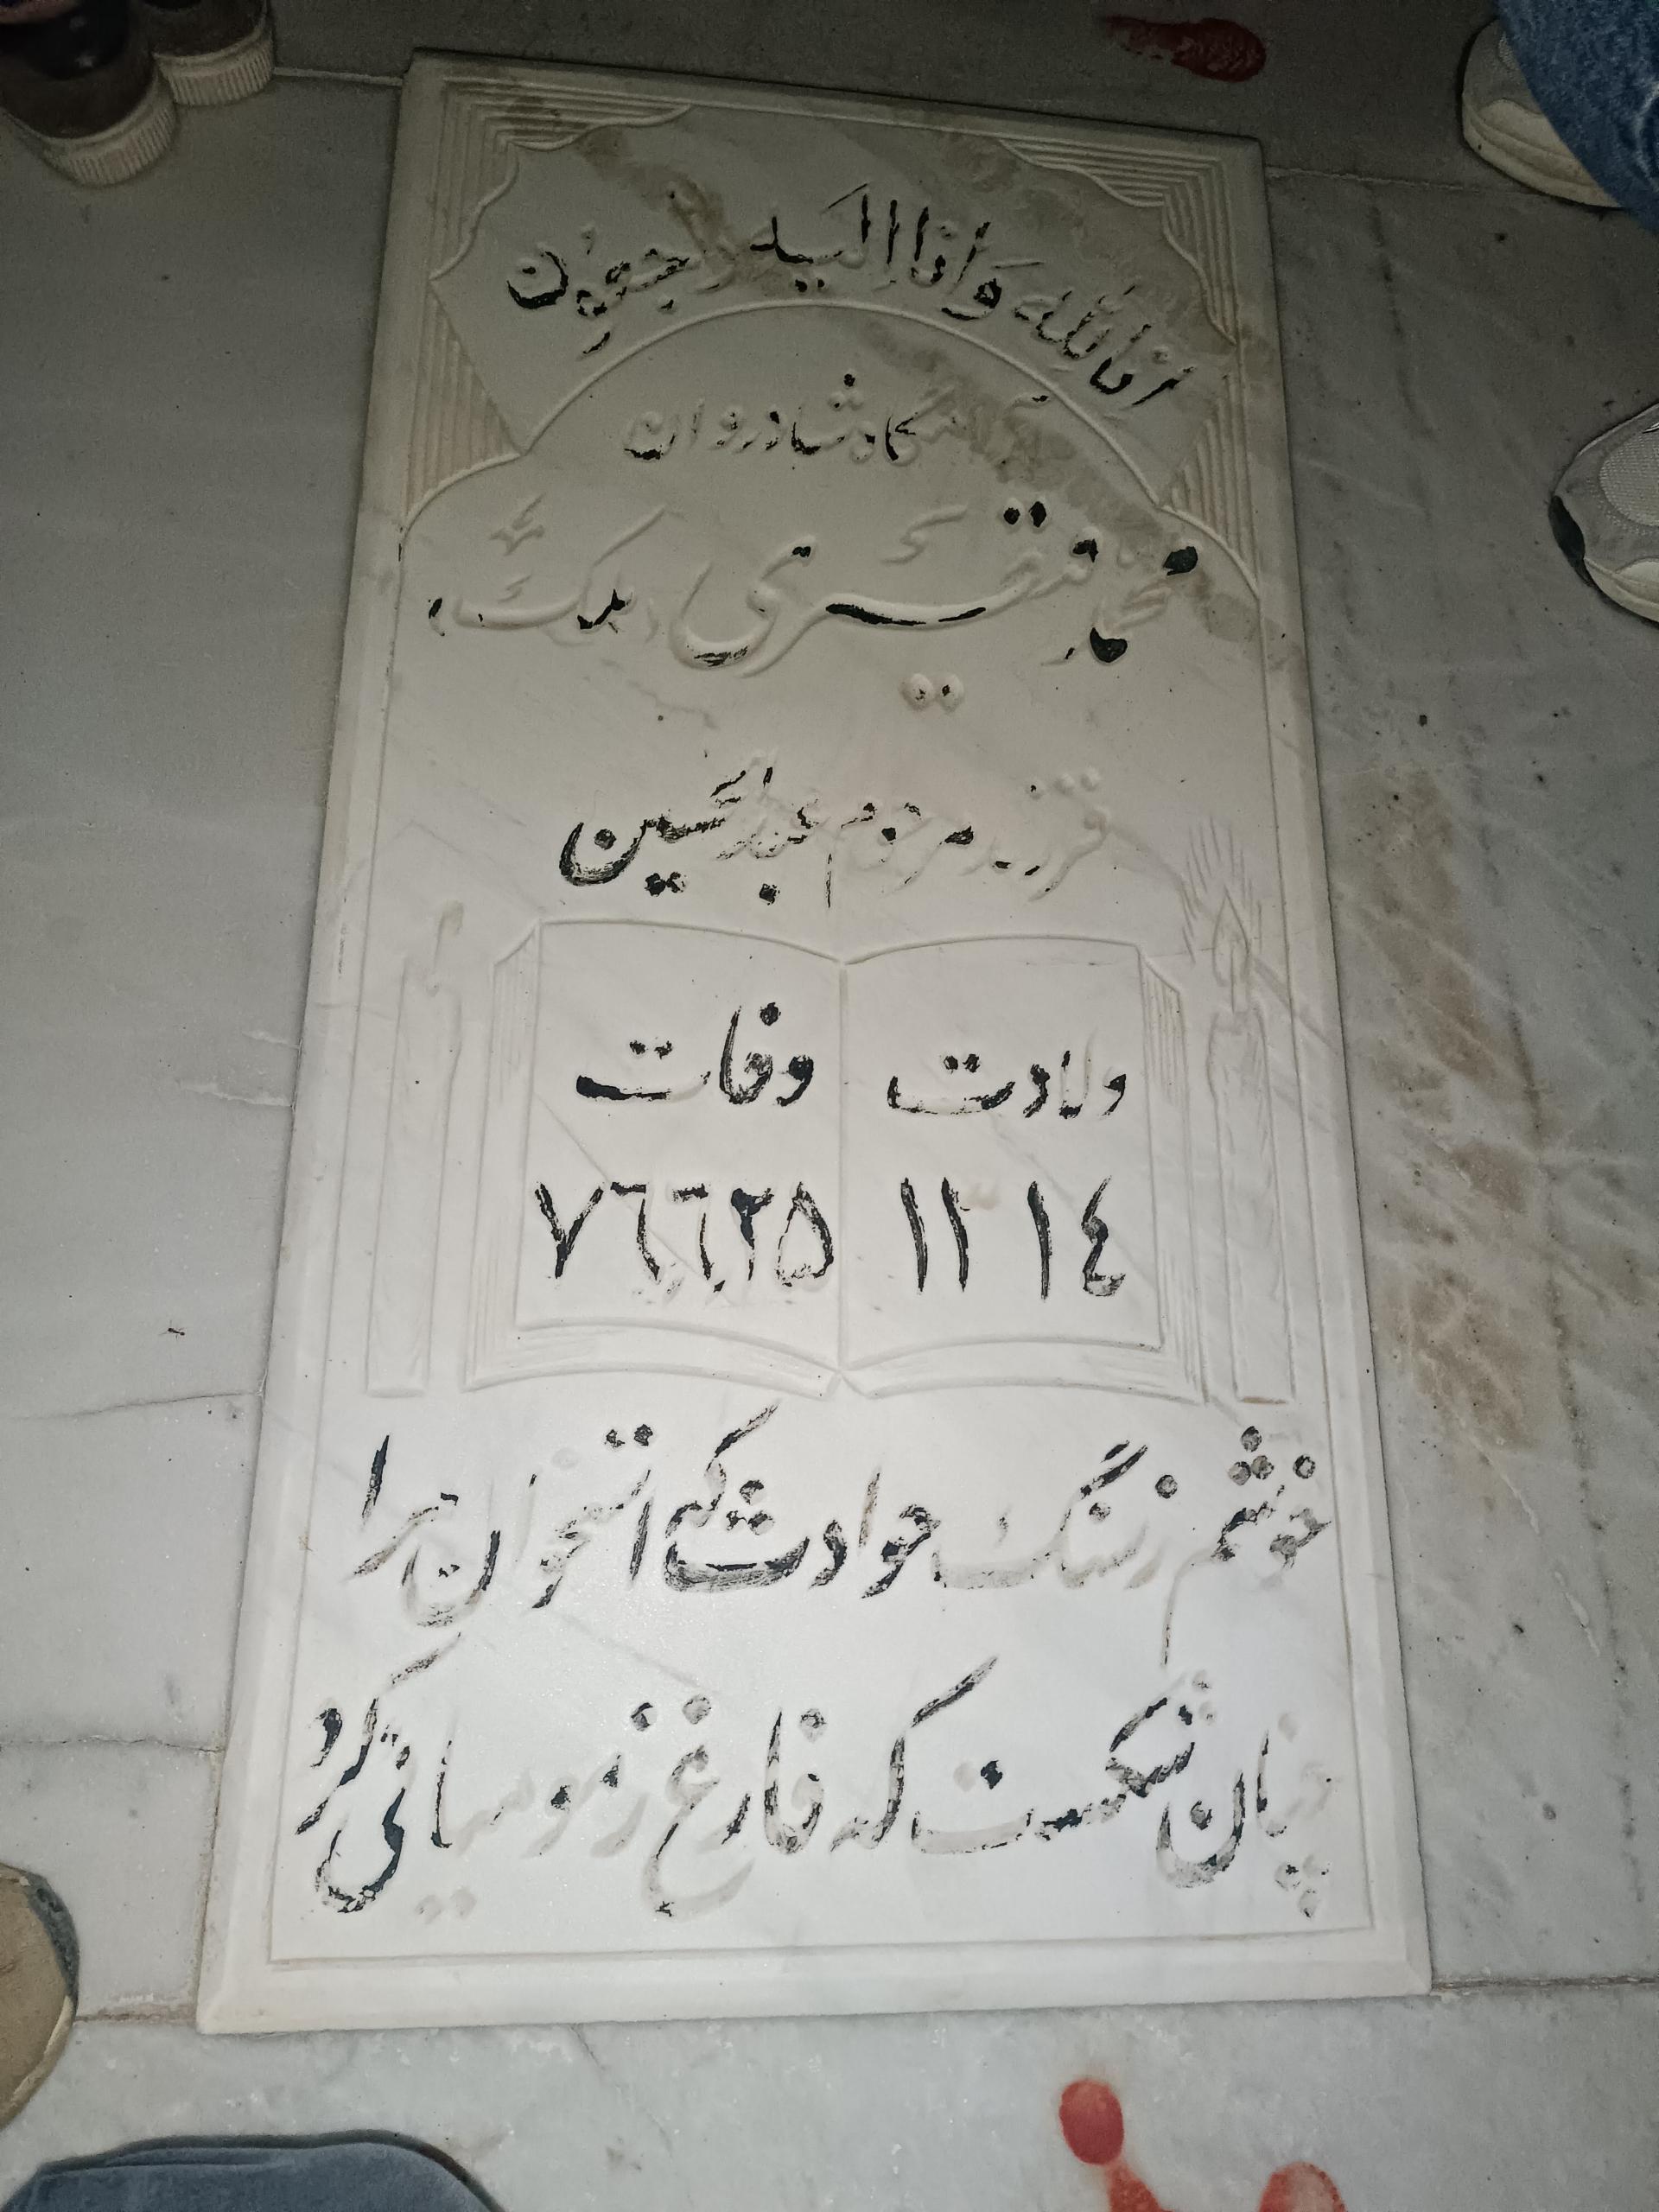 انا لله وانا الیه راجعون
آرامگاه شادروان
محمد
فرزند مرحوم عبدالحسین
ولادت وفات
۷٦.٦.۲۵
خوشم ز سنگ حوادث که استخوان مرا
چنان شکست که فارغ ز مومیائی کرد